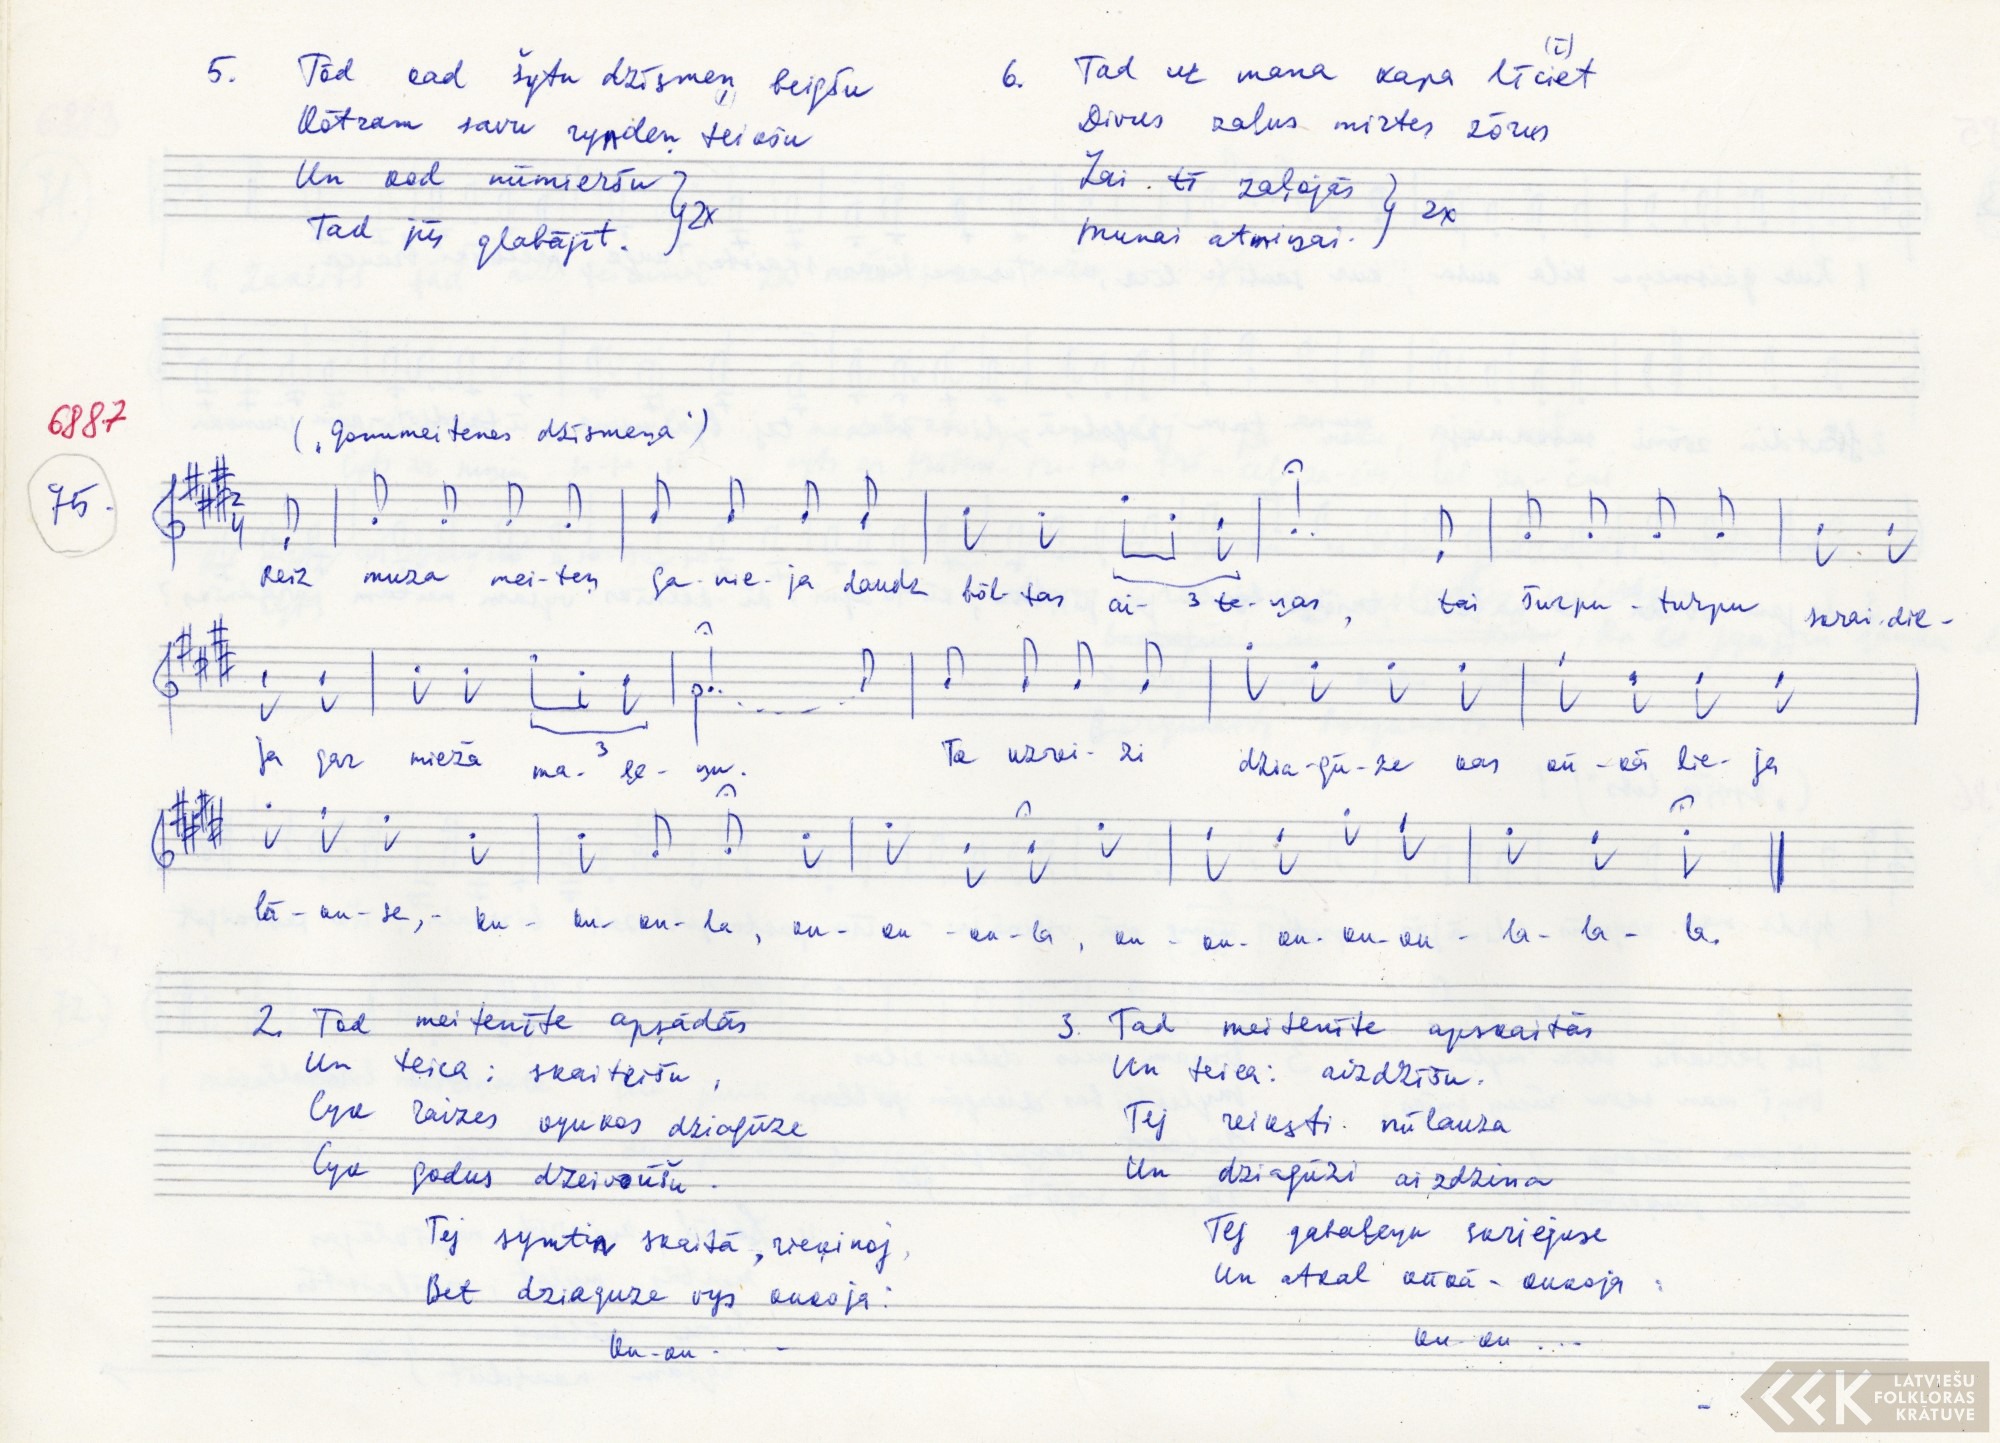 5. Tōd kad šytu dzīsmeņ beigšu
Kōtram savu rynden teikšu
Un kod nūmieršu } 2x
Tad jỹs glabājit.
6. Tad uz mana kapa līciet
(ī)
Divus zaļus mirtes zōrus
Lai tī zaļojās } 2x
Munai atmiņai.
6887
("Gonumeitenes dzīsmeņa")
75.
2/4
Reiz muza mei-teņ ga-nie-ja daudz bōl-tas ai-te-ņas, tai šurpu-turpu skrai-die-
3
ja gar mieža ma-le-ņu. Ta uzrai-zi dzia-gū-ze kas kū-kā lie-ja
3
lā-ku-se,- ku-ku-ku-la, ku-ku-ku-la, ku-ku-ku-ku-ku-la-la-la.
2. Tod meitenīte apsādās
Un teica: skaiteišu,
Cyk raizes kyukos dziagūze
Cyk godus dzeivōšu.
Tej symtim skaitā, rieķinoj,
Bet dziaguze vys kukoja:
Ku-ku . . -
3. Tad meitenīte apskaitās
Un teica: aizdzīšu.
Tej reiksti nūlauza
Un dziagūzi aizdzina
Tej gabaleņu skriejuse
Un atkal kūkā-kukoja:
ku-ku ...
LATVIEŠU
FOLKLORAS
KRĀTUVE